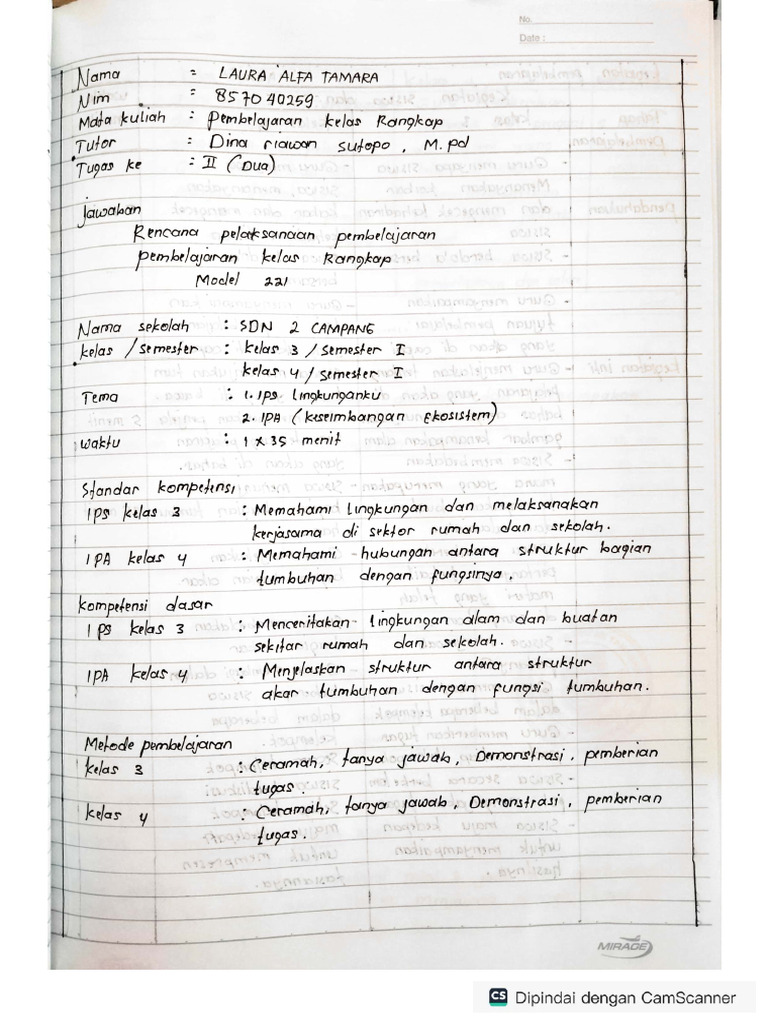 No.
Date :
Nama : LAURA ALFA TAMARA
Nim : 857040259
Mata kuliah : Pembelajaran kelas Rangkap
Tutor : Dina riawan sutopo, M.pd
Tugas ke : II (Dua)
Jawaban
Rencana pelaksanaan pembelajaran
pembelajaran kelas Rangkap
Model 221
Nama sekolah : SDN 2 CAMPANG
kelas / semester : kelas 3 / semester I
kelas 4 / semester I
Tema : 1. IPS Lingkunganku
2. IPA (keseimbangan Ekosistem)
waktu : 1 x 35 menit
Standar kompetensi
IPS kelas 3 : Memahami Lingkungan dan melaksanakan
kerjasama di sektor rumah dan sekolah.
IPA kelas 4 : Memahami hubungan antara struktur bagian
tumbuhan dengan fungsinya.
kompetensi dasar
IPS kelas 3 : Menceritakan lingkungan alam dan buatan
sekitar rumah dan sekolah.
IPA kelas 4 : Menjelaskan struktur antara struktur
akar tumbuhan dengan fungsi tumbuhan.
Metode pembelajaran
kelas 3 : Ceramah, tanya jawab, Demonstrasi, pemberian
tugas.
kelas 4 : Ceramah, tanya jawab, Demonstrasi, pemberian
tugas.
MIRAGE
CS Dipindai dengan CamScanner